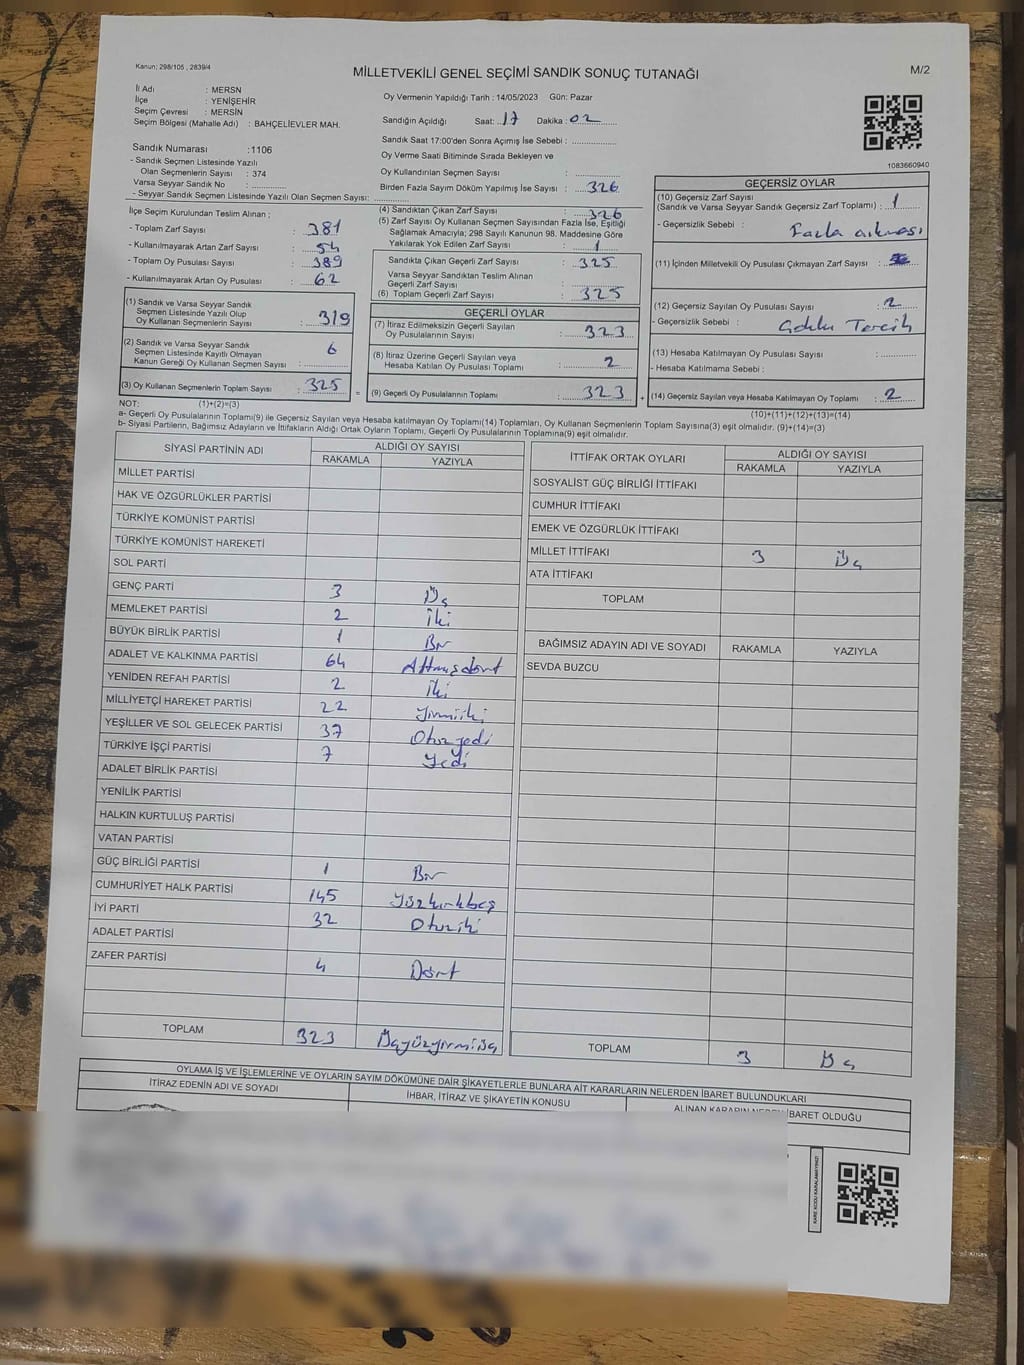 Kanun; 298/105 , 2839/4
MİLLETVEKİLİ GENEL SEÇİMİ SANDIK SONUÇ TUTANAĞI
M/2
İl Adı : MERSN
İlçe : YENİŞEHİR
Seçim Çevresi : MERSİN
Seçim Bölgesi (Mahalle Adı) : BAHÇELİEVLER MAH.
Oy Vermenin Yapıldığı Tarih : 14/05/2023 Gün: Pazar
Sandığın Açıldığı Saat: 17 Dakika: 02
Sandık Saat 17:00'den Sonra Açımış İse Sebebi :
Oy Verme Saati Bitiminde Sırada Bekleyen ve
Oy Kullandırılan Seçmen Sayısı :
Birden Fazla Sayım Döküm Yapılmış İse Sayısı : 326
1083660940
Sandık Numarası :1106
- Sandık Seçmen Listesinde Yazılı
Olan Seçmenlerin Sayısı : 374
Varsa Seyyar Sandık No :
- Seyyar Sandık Seçmen Listesinde Yazılı Olan Seçmen Sayısı:
İlçe Seçim Kurulundan Teslim Alınan ;
- Toplam Zarf Sayısı : 381
- Kullanılmayarak Artan Zarf Sayısı : 54
- Toplam Oy Pusulası Sayısı : 389
- Kullanılmayarak Artan Oy Pusulası : 62
(1) Sandık ve Varsa Seyyar Sandık
Seçmen Listesinde Yazılı Olup
Oy Kullanan Seçmenlerin Sayısı : 319
(2) Sandık ve Varsa Seyyar Sandık
Seçmen Listesinde Kayıtlı Olmayan
Kanun Gereği Oy Kullanan Seçmen Sayısı : 6
(3) Oy Kullanan Seçmenlerin Toplam Sayısı : 325
(4) Sandıktan Çıkan Zarf Sayısı : 326
(5) Zarf Sayısı Oy Kullanan Seçmen Sayısından Fazla İse, Eşitliği
Sağlamak Amacıyla; 298 Sayılı Kanunun 98. Maddesine Göre
Yakılarak Yok Edilen Zarf Sayısı : 1
Sandıkta Çıkan Geçerli Zarf Sayısı : 325
Varsa Seyyar Sandıktan Teslim Alınan
Geçerli Zarf Sayısı :
(6) Toplam Geçerli Zarf Sayısı : 325
GEÇERLİ OYLAR
(7) İtiraz Edilmeksizin Geçerli Sayılan
Oy Pusulalarının Sayısı : 323
(8) İtiraz Üzerine Geçerli Sayılan veya
Hesaba Katılan Oy Pusulası Toplamı : 2
(9) Geçerli Oy Pusulalarının Toplamı : 323
GEÇERSİZ OYLAR
(10) Geçersiz Zarf Sayısı
(Sandık ve Varsa Seyyar Sandık Geçersiz Zarf Toplamı) : 1
- Geçersizlik Sebebi : Fazla çıkması
(11) İçinden Milletvekili Oy Pusulası Çıkmayan Zarf Sayısı :
(12) Geçersiz Sayılan Oy Pusulası Sayısı : 2
- Geçersizlik Sebebi : Çoklu Tercih
(13) Hesaba Katılmayan Oy Pusulası Sayısı :
- Hesaba Katılmama Sebebi :
(14) Geçersiz Sayılan veya Hesaba Katılmayan Oy Toplamı : 2
NOT: (1)+(2)=(3)
(10)+(11)+(12)+(13)=(14)
a- Geçerli Oy Pusulalarının Toplamı(9) ile Geçersiz Sayılan veya Hesaba katılmayan Oy Toplamı(14) Toplamları, Oy Kullanan Seçmenlerin Toplam Sayısına(3) eşit olmalıdır. (9)+(14)=(3)
b- Siyasi Partilerin, Bağımsız Adayların ve İttifakların Aldığı Ortak Oyların Toplamı, Geçerli Oy Pusulalarının Toplamına(9) eşit olmalıdır.
SİYASİ PARTİNİN ADI ALDIĞI OY SAYISI
RAKAMLA YAZIYLA
MİLLET PARTİSİ
HAK VE ÖZGÜRLÜKLER PARTİSİ
TÜRKİYE KOMÜNİST PARTİSİ
TÜRKİYE KOMÜNİST HAREKETİ
SOL PARTİ
GENÇ PARTİ 3 Üç
MEMLEKET PARTİSİ 2 İki
BÜYÜK BİRLİK PARTİSİ 1 Bir
ADALET VE KALKINMA PARTİSİ 64 Altmışdört
YENİDEN REFAH PARTİSİ 2 İki
MİLLİYETÇİ HAREKET PARTİSİ 22 Yirmiiki
YEŞİLLER VE SOL GELECEK PARTİSİ 37 Otuzyedi
TÜRKİYE İŞÇİ PARTİSİ 7 Yedi
ADALET BİRLİK PARTİSİ
YENİLİK PARTİSİ
HALKIN KURTULUŞ PARTİSİ
VATAN PARTİSİ
GÜÇ BİRLİĞİ PARTİSİ 1 Bir
CUMHURİYET HALK PARTİSİ 145 Yüzkırkbeş
İYİ PARTİ 32 Otuziki
ADALET PARTİSİ
ZAFER PARTİSİ 4 Dört
TOPLAM 323 Üçyüzyirmiüç
İTTİFAK ORTAK OYLARI ALDIĞI OY SAYISI
RAKAMLA YAZIYLA
SOSYALİST GÜÇ BİRLİĞİ İTTİFAKI
CUMHUR İTTİFAKI
EMEK VE ÖZGÜRLÜK İTTİFAKI
MİLLET İTTİFAKI 3 Üç
ATA İTTİFAKI
TOPLAM
BAĞIMSIZ ADAYIN ADI VE SOYADI RAKAMLA YAZIYLA
SEVDA BUZCU
TOPLAM 3 Üç
OYLAMA İŞ VE İŞLEMLERİNE VE OYLARIN SAYIM DÖKÜMÜNE DAİR ŞİKAYETLERLE BUNLARA AİT KARARLARIN NELERDEN İBARET BULUNDUKLARI
İTİRAZ EDENİN ADI VE SOYADI İHBAR, İTİRAZ VE ŞİKAYETİN KONUSU ALINAN KARARIN NEDEN İBARET OLDUĞU
KARE KODU KARALAMAYINIZ!